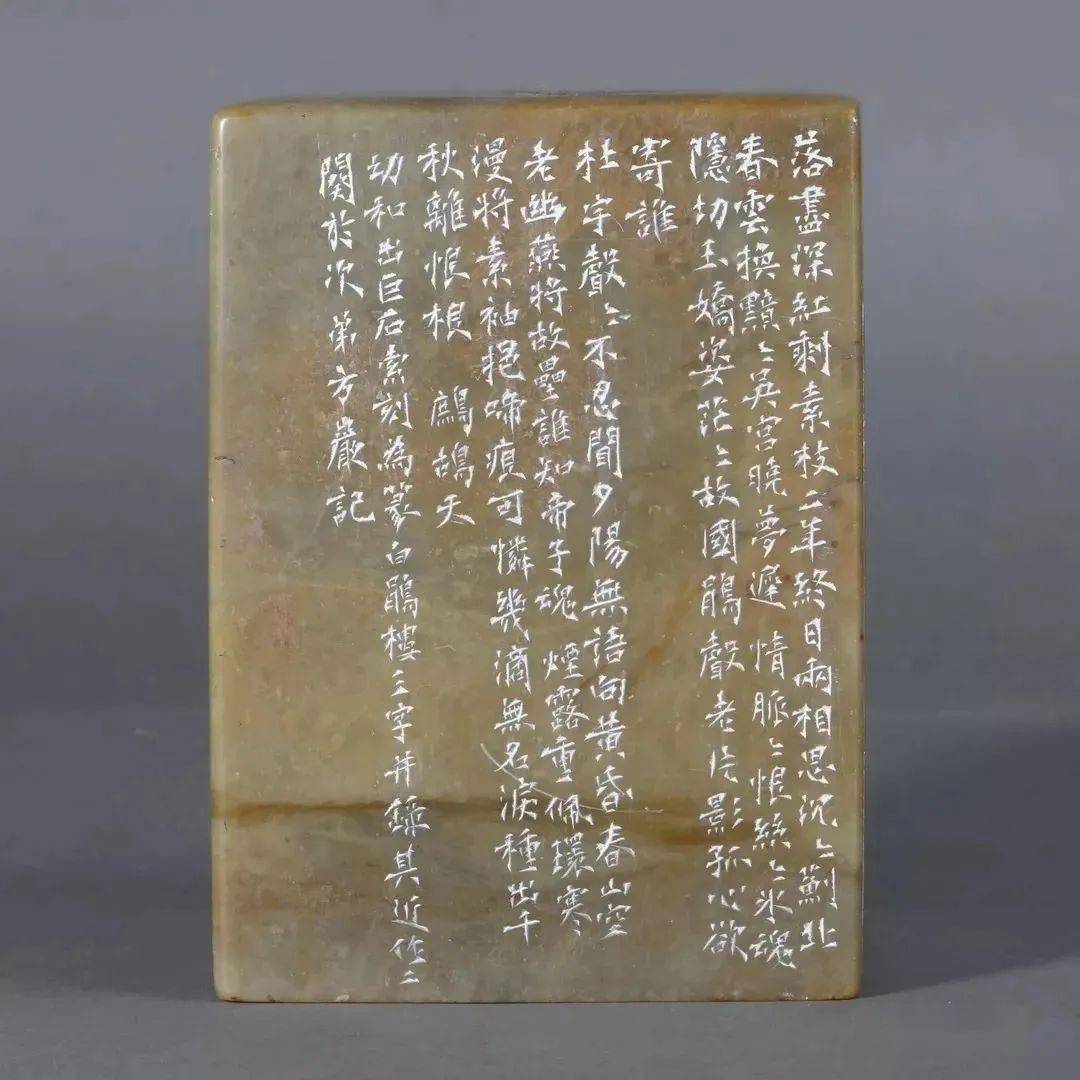 落盡深紅剩素枝二年終日兩相思沉〻薊北
春雲換黯〻吳宮曉夢遲 情脈〻恨絲〻氷魂
隱切玉嬌姿茫〻故國鵑聲老片影孤心欲
寄誰
杜宇聲〻不忍聞夕陽無語向黃昏春山空
老幽燕將故壘誰知帝子魂 煙露重佩環寒
漫將素袖挹啼痕可憐幾滴無名淚種出千
秋離恨根 鷓鴣天
切和出巨石索刻為篆白鵑樓三字并錄其近作二
闋於次 第方巖記